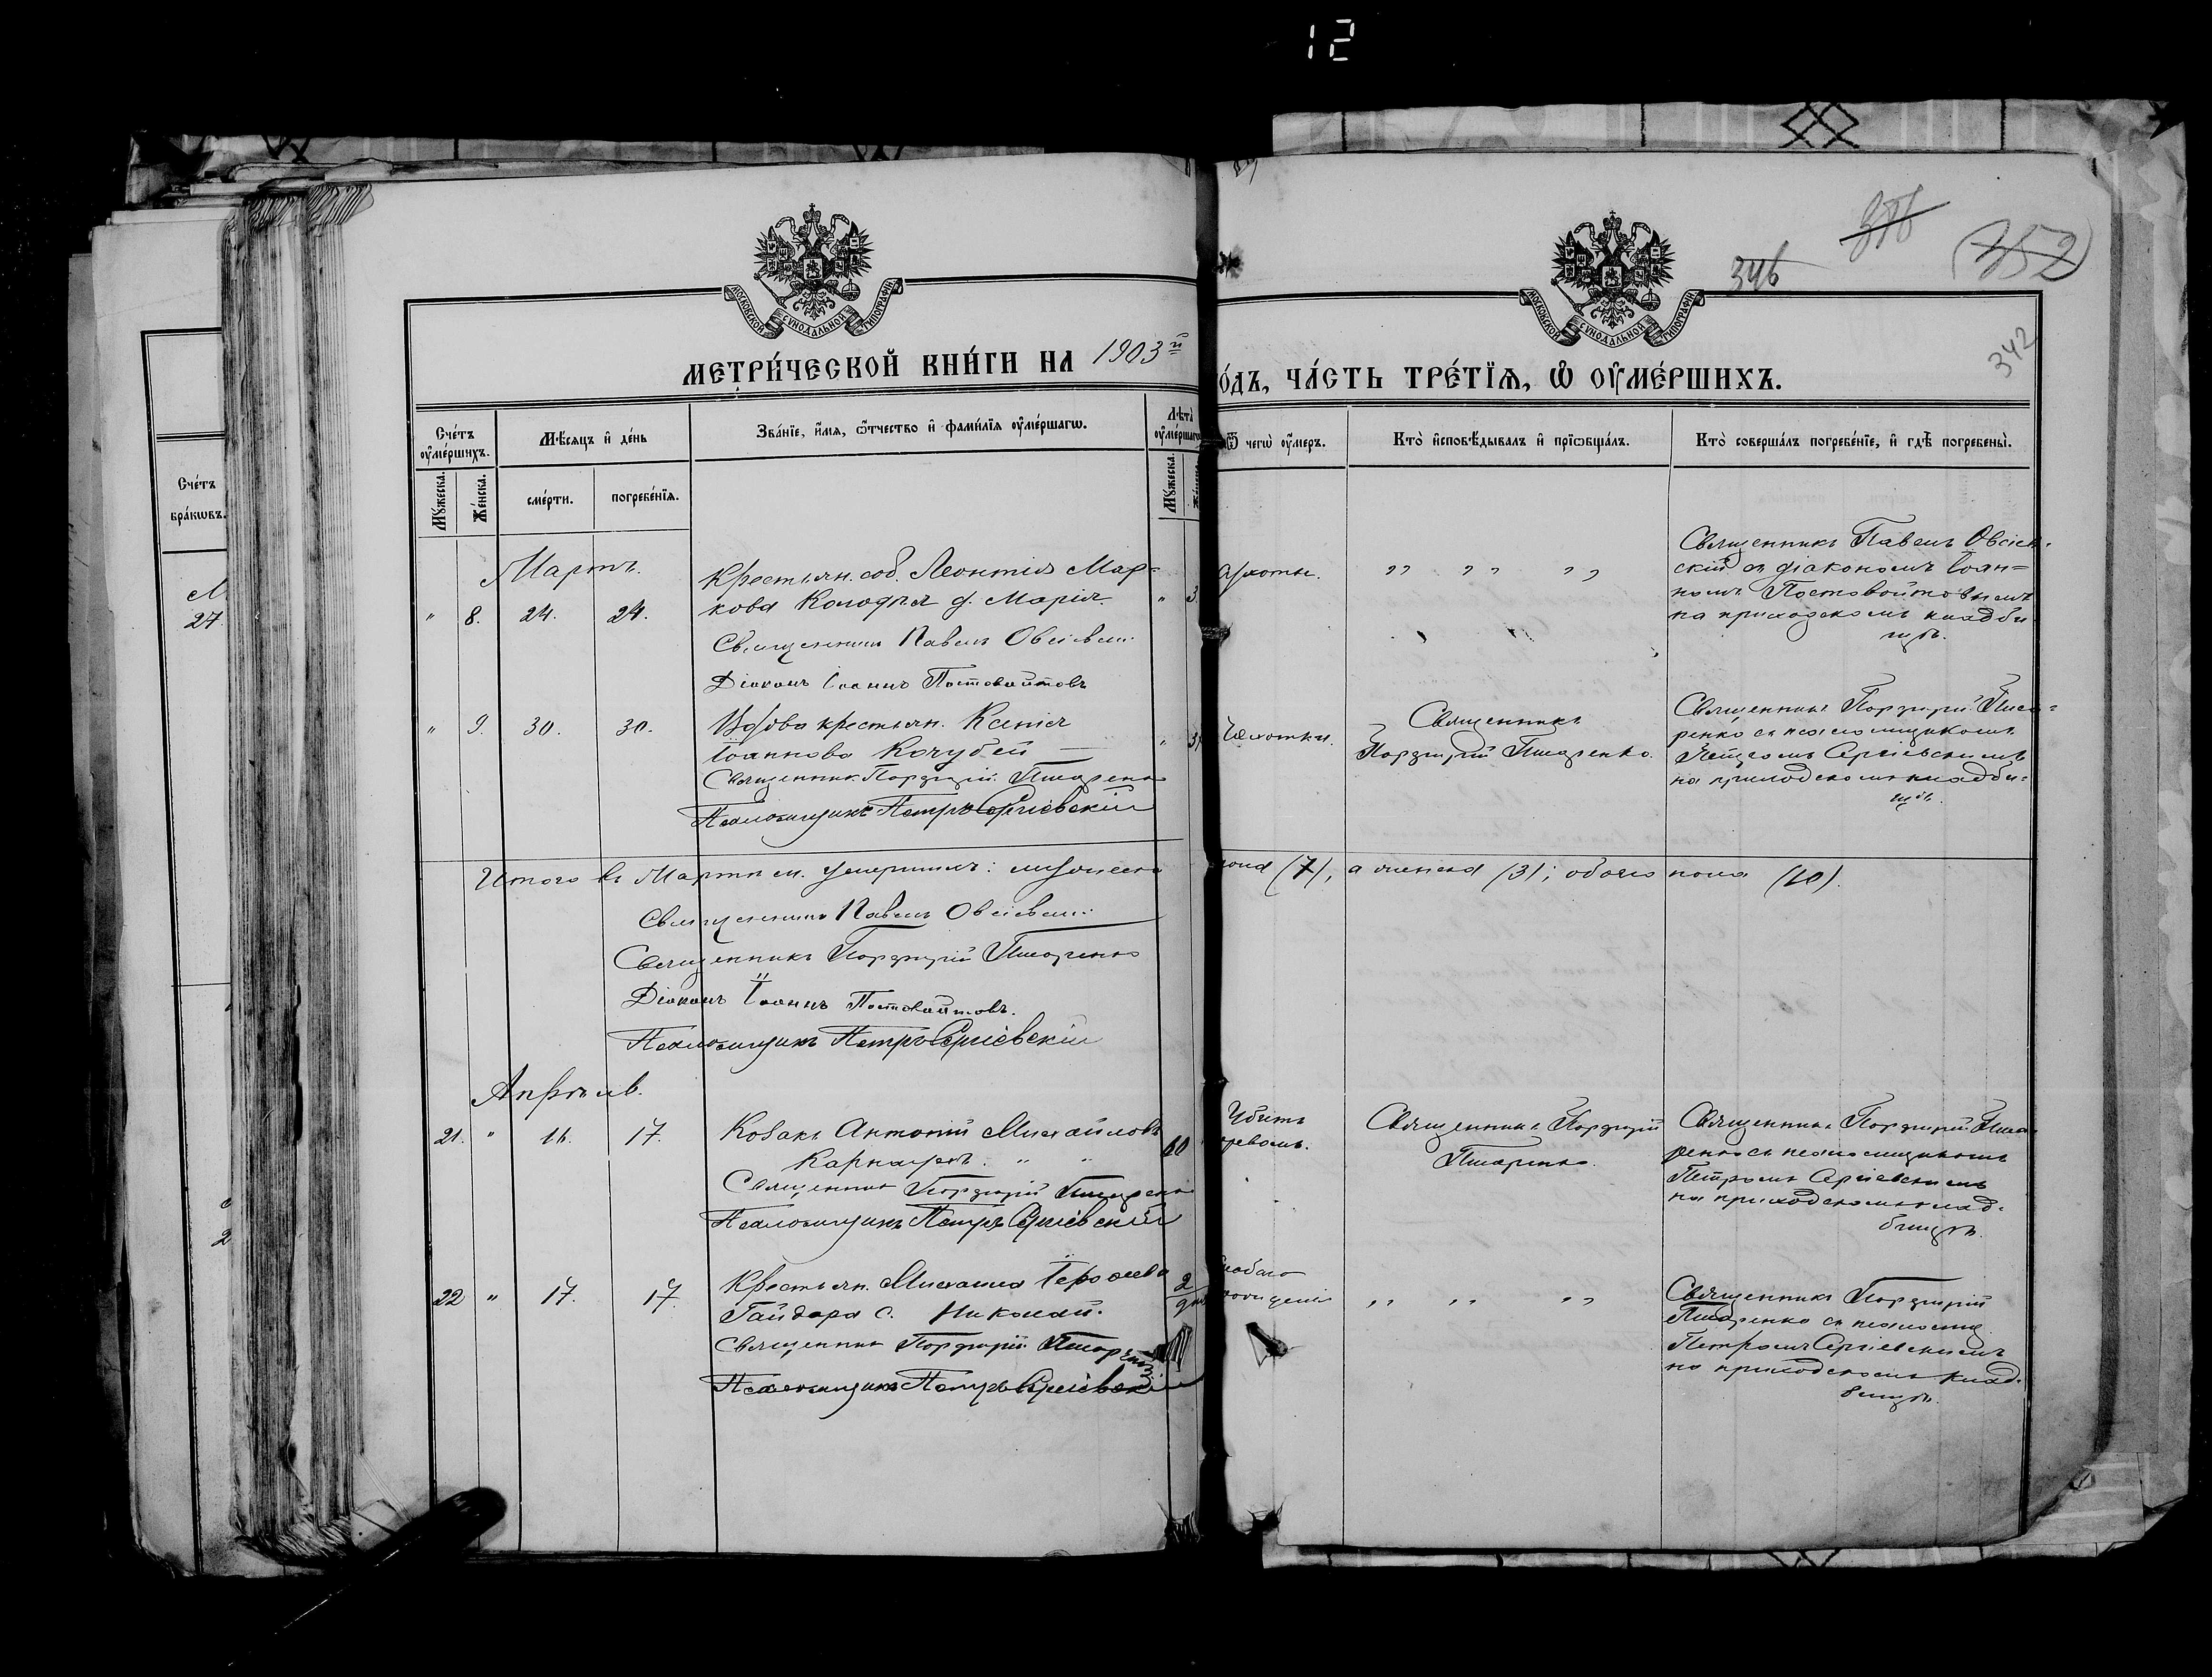 12
346
352
342
МОСКОВСКОЙ СУНОДАЛЬНОЙ ТИПОГРАФІИ
МОСКОВСКОЙ СУНОДАЛЬНОЙ ТИПОГРАФІИ
МЕТРИ́ЧЕСКОЙ КНИ́ГИ НА 1903й
ОДЪ, ЧА́СТЬ ТРЕ́ТЇѦ, Ѽ ОУ҆МЕ́РШИХЪ.
Сче́тъ бра́кѡвъ.
27
Сче́тъ оу҆ме́ршихъ.
Мꙋ́жеска.
Же́нска.
Мѣ́сѧцъ и҆ де́нь
сме́рти.
погребе́нїѧ.
Зва́нїе, и҆́мѧ, ѻ҆́тчество и҆ фами́лїѧ оу҆ме́ршагѡ.
Лѣта̀ оу҆ме́ршагѡ
Мꙋ́жеска.
Ѿ чегѡ̀ оу҆́меръ.
Кто̀ и҆сповѣ́дывалъ и҆ прїѡбща́лъ.
Кто̀ соверша́лъ погребе́нїе, и҆ гдѣ̀ погребены̀.
Мартъ.
" 8. 24. 24.
Крестьян. соб. Леонтія Мар=
кова Колодѣя д. Марія.
Священникъ Павелъ
Діаконъ Іоаннъ Постовойтовъ
" " "
Священникъ Павелъ Овсіев-
скій съ діакономъ Іоан=
номъ Постовойтовымъ
на приходскомъ кладби
щѣ.
" 9. 30. 30.
Вдова крестьян. Ксенія
Іоаннова Кочубей
Священникъ Порфирій Писаренко
Псаломщикъ Петръ Сергіевскій
Чахотки.
Священникъ
Порфирій Писаренко.
Священникъ Порфирій Писа=
ренко съ псаломщикомъ
Петромъ Сергіевскимъ
на приходскомъ кладби=
щѣ.
Итого въ Мартѣ м. умершихъ: мужеска пола (7), а женска (3); обоего пола (10).
Священникъ Павелъ
Священникъ Порфирій Писаренко
Діаконъ Іоаннъ Постовойтовъ.
Псаломщикъ Петръ Сергіевскій
Апрѣль.
21. " 16. 17.
Козакъ Антоній Михайловъ
" "
Священникъ Порфирій Писаренко
Псаломщикъ Петръ Сергіевскій
Убитъ
Священникъ Порфирій
Писаренко.
Священникъ Порфирій Писа
ренко съ псаломщикомъ
Петромъ Сергіевскимъ
на приходскомъ клад-
бищѣ.
22 " 17. 17.
Крестьян. Михаила
Гайдара с. Николай.
Священникъ Порфирій Писаренко
Псаломщикъ Петръ Сергіевскій
2
дня
" " "
Священникъ Порфирій
Писаренко съ псаломщ.
Петромъ Сергіевскимъ
на приходскомъ клад-
бищѣ.